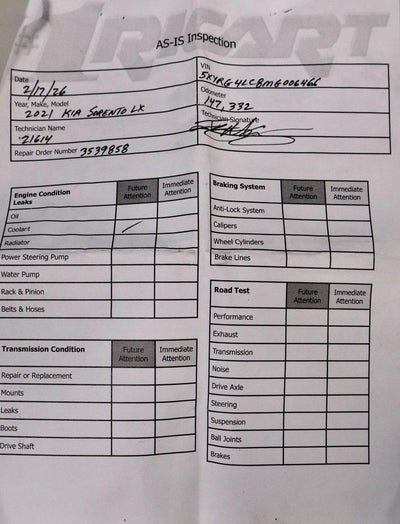 #1 RISFORT
AS-IS Inspection
Date
2/17/26
Year, Make, Model
2021 KIA SORENTO LX
Technician Name
21614
Repair Order Number 3539858
VIN
Odometer
147,332
Technician Signature
Engine Condition Future Attention Immediate Attention
Leaks
Oil
Coolant
Radiator
Power Steering Pump
Water Pump
Rack & Pinion
Belts & Hoses
Transmission Condition Future Attention Immediate Attention
Repair or Replacement
Mounts
Leaks
Boots
Drive Shaft
Braking System Future Attention Immediate Attention
Anti-Lock System
Calipers
Wheel Cylinders
Brake Lines
Road Test Future Attention Immediate Attention
Performance
Exhaust
Transmission
Noise
Drive Axle
Steering
Suspension
Ball Joints
Brakes